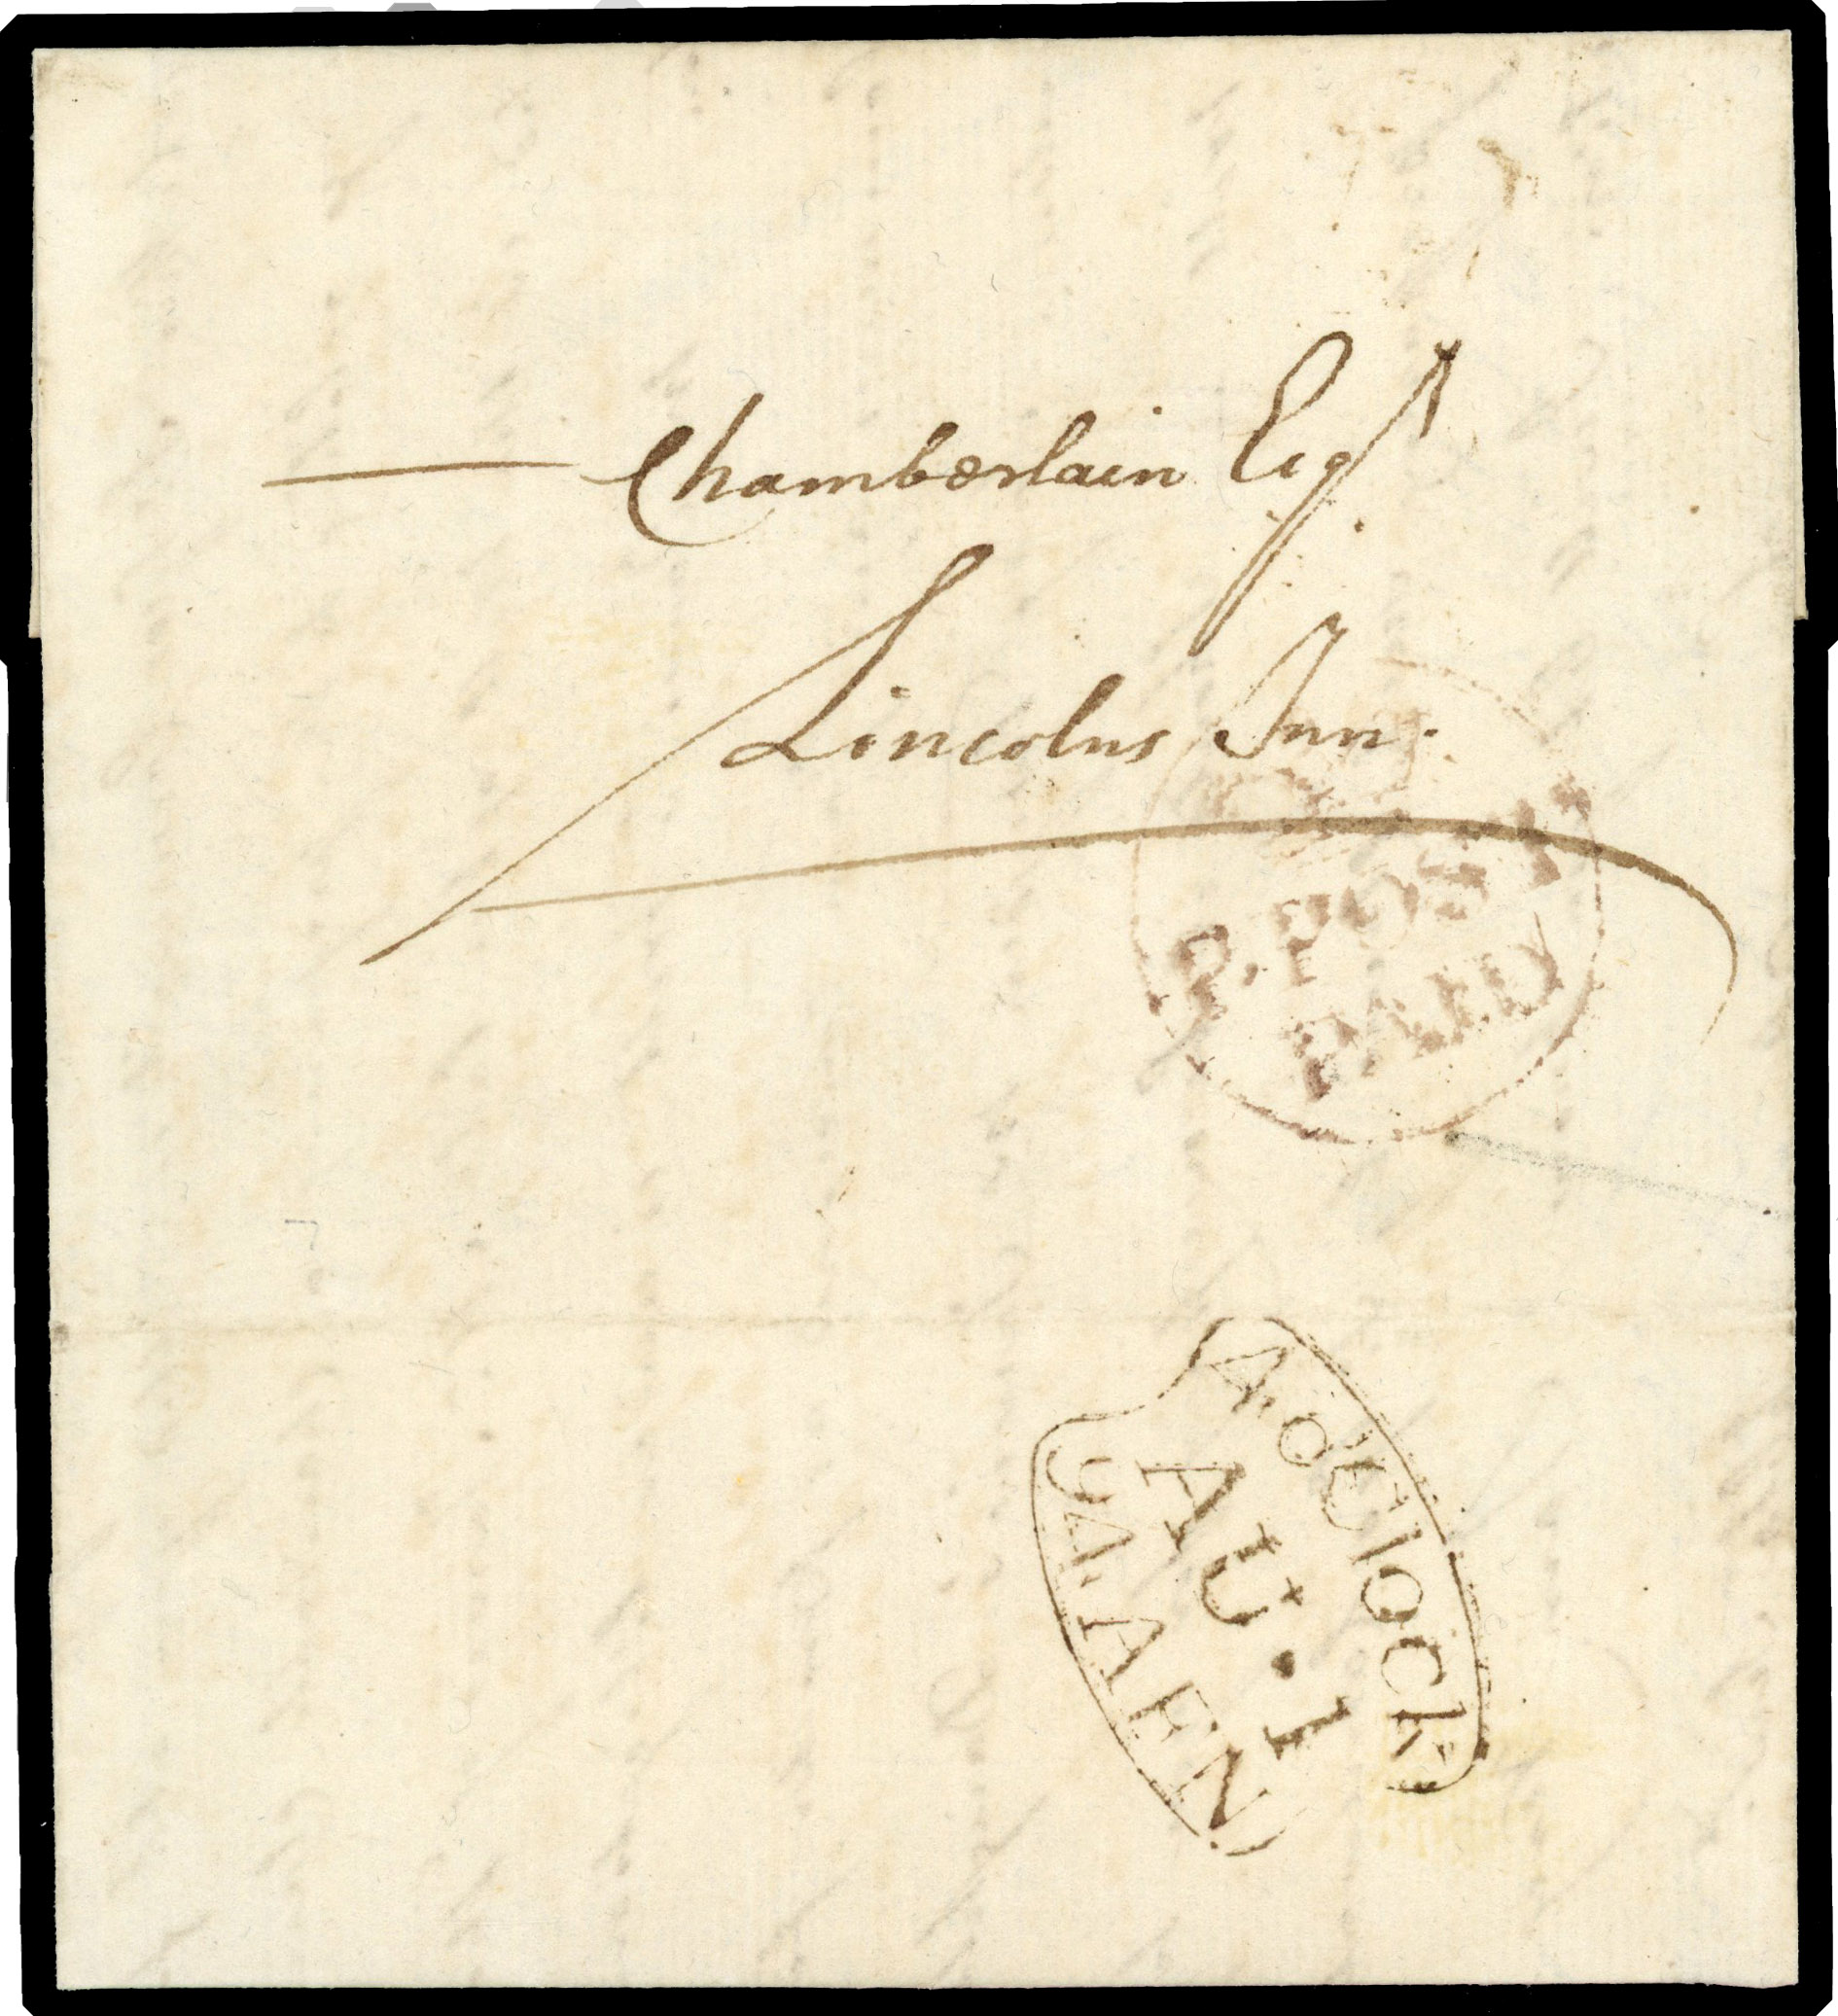 — Chamberlain Esqr.
Lincolns Inn.
P. POST
PAID
4.OClOCK
AU.1
94.AFN